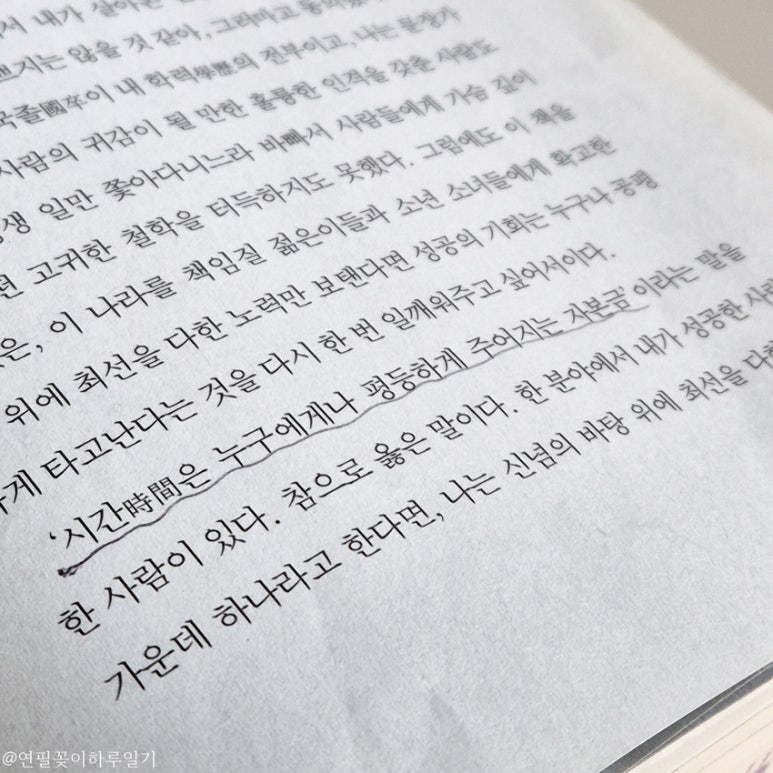 서 내가 살아온
지는 않을 것 같아, 그러마고
국졸國卒이 내 학력學歷의 전부이고, 나는 문장가
사람의 귀감이 될 만한 훌륭한 인격을 갖춘 사람도
생 일만 쫓아다니느라 바빠서 사람들에게 가슴 깊이
고귀한 철학을 터득하지도 못했다. 그럼에도 이 책을
은, 이 나라를 책임질 젊은이들과 소년 소녀들에게 확고한
위에 최선을 다한 노력만 보탠다면 성공의 기회는 누구나 공평
하게 타고난다는 것을 다시 한 번 일깨워주고 싶어서이다.
‘시간時間은 누구에게나 평등하게 주어지는 자본금’이라는 말을
한 사람이 있다. 참으로 옳은 말이다. 한 분야에서 내가 성공한
가운데 하나라고 한다면, 나는 신념의 바탕 위에 최선을
@연필꽂이하루일기